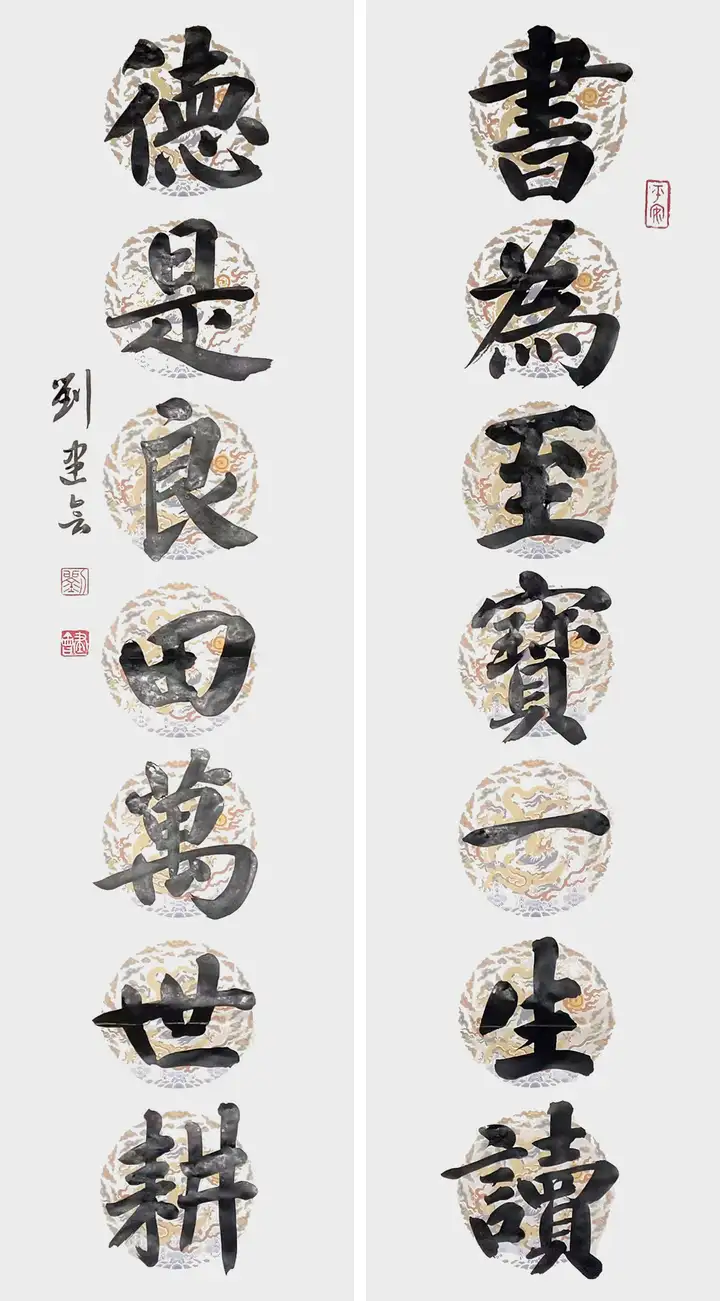 書為至寶一生讀
平安
德是良田萬世耕
劉建云
劉